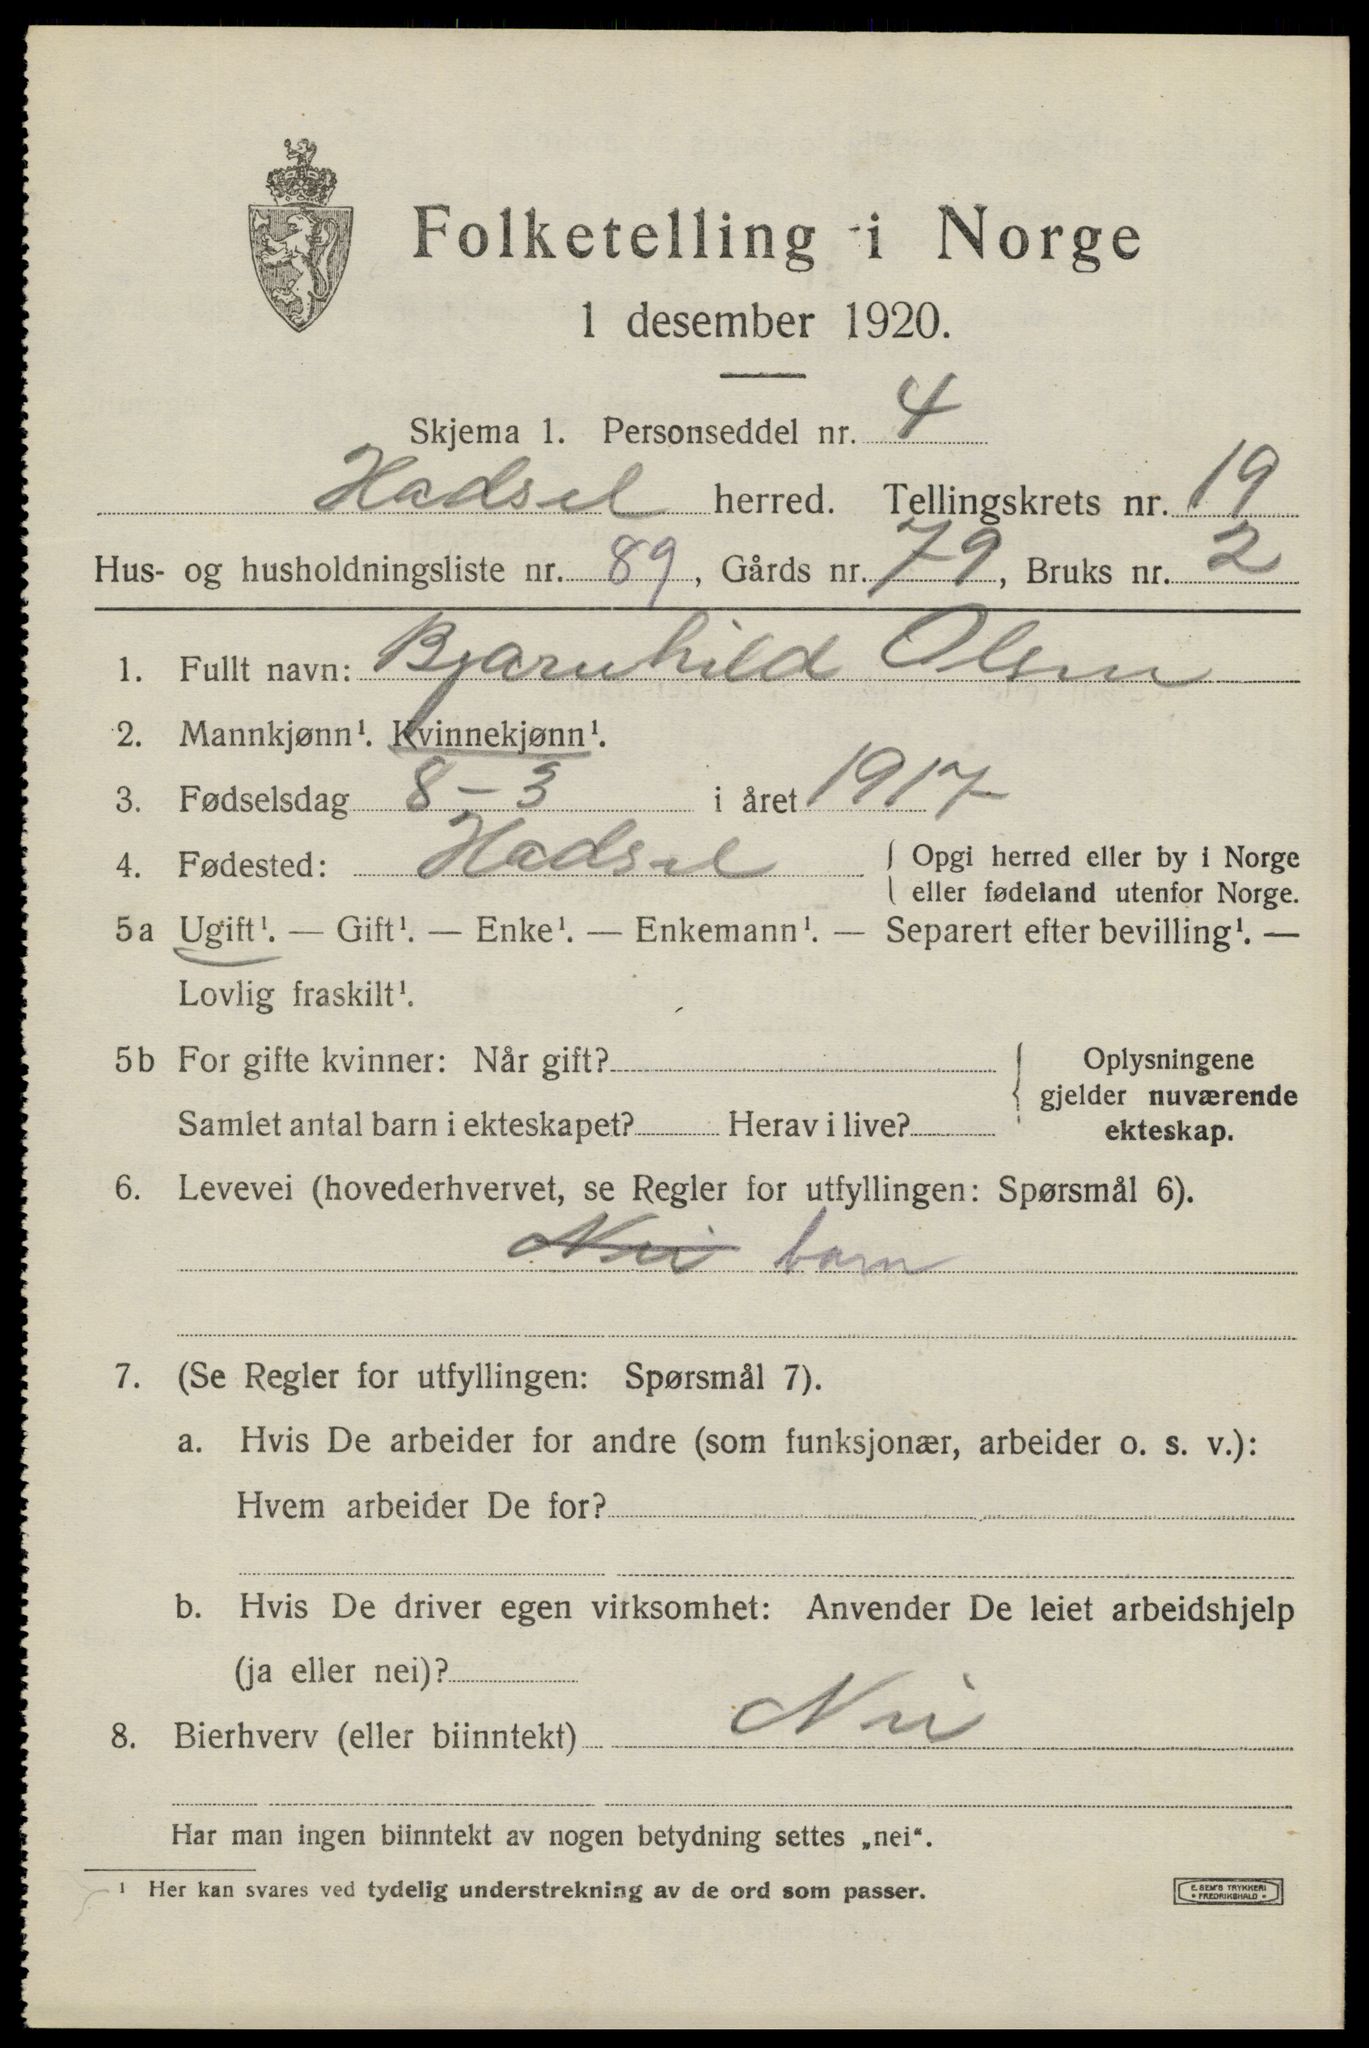 Folketelling i Norge
1 desember 1920.
Skjema 1. Personseddel nr. 4
Hadsel herred. Tellingskrets nr. 19
Hus- og husholdningsliste nr. 89, Gårds nr. 79, Bruks nr. 2
1. Fullt navn: Bjarnhild Olsen
2. Mannkjønn¹. Kvinnekjønn¹.
3. Fødselsdag 8-3 i året 1917
4. Fødested: Hadsel { Opgi herred eller by i Norge
eller fødeland utenfor Norge.
5a Ugift¹. — Gift¹. — Enke¹. — Enkemann¹. — Separert efter bevilling¹. —
Lovlig fraskilt¹.
5b For gifte kvinner: Når gift? { Oplysningene
gjelder nuværende
Samlet antal barn i ekteskapet? Herav i live? ekteskap.
6. Levevei (hovederhvervet, se Regler for utfyllingen: Spørsmål 6).
Nei barn
7. (Se Regler for utfyllingen: Spørsmål 7).
a. Hvis De arbeider for andre (som funksjonær, arbeider o. s. v.):
Hvem arbeider De for?
b. Hvis De driver egen virksomhet: Anvender De leiet arbeidshjelp
(ja eller nei)?
8. Bierhverv (eller biinntekt) Nei
Har man ingen biinntekt av nogen betydning settes „nei“.
¹ Her kan svares ved tydelig understrekning av de ord som passer.
E. SEM'S TRYKKERI
• FREDRIKSHALD •